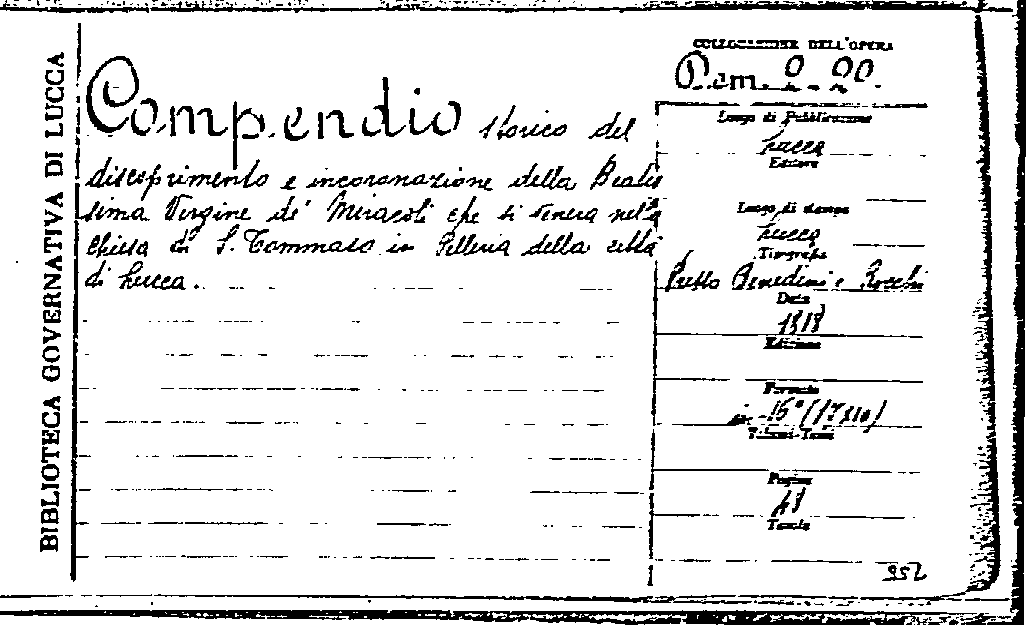 BIBLIOTECA GOVERNATIVA DI LUCCA
Compendio storico del
discoprimento e incoronazione della Beatis
sima Vergine de' Miracoli che si venera nella
Chiesa di S. Tommaso in Pelleria della città
di Lucca.
COLLOCAZIONE DELL'OPERA
Luogo di Pubblicazione
Lucca
Editore
Luogo di stampa
Lucca
Tipografia
Presso Benedini e Rocchi
Data
1818
Edizione
Formato
in-16° (17x10)
Volumi-Tomi
Pagine
48
Tavole
952